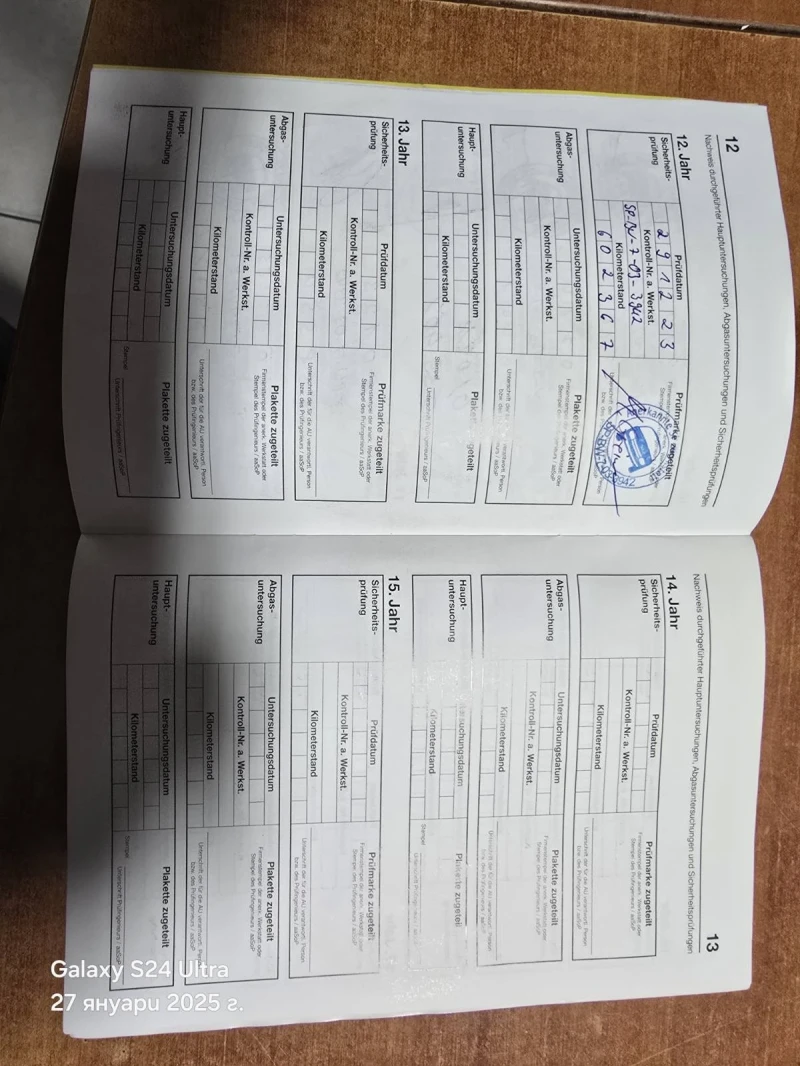 12
Nachweis durchgeführter Hauptuntersuchungen, Abgasuntersuchungen und Sicherheitsprüfungen
12. Jahr
Sicherheits-
prüfung
Prüfdatum
2 9 1 2 2 3
Kontroll-Nr. a. Werkst.
SP-BW-7-03-3942
Kilometerstand
6 0 2 3 6 7
Prüfmarke zugeteilt
Abgas-
untersuchung
Untersuchungsdatum
Kontroll-Nr. a. Werkst.
Kilometerstand
Plakette zugeteilt
Firmenstempel der anerk. Werkstatt oder
Stempel des Prüfingenieurs / aaSoP
Haupt-
untersuchung
Untersuchungsdatum
Kilometerstand
Plakette zugeteilt
Stempel
Unterschrift Prüfingenieurs / aaSoP
13. Jahr
Sicherheits-
prüfung
Prüfdatum
Kontroll-Nr. a. Werkst.
Kilometerstand
Prüfmarke zugeteilt
Firmenstempel der anerk. Werkstatt oder
Stempel des Prüfingenieurs / aaSoP
Unterschrift der für die AU verantwortl. Person
bzw. des Prüfingenieurs / aaSoP
Abgas-
untersuchung
Untersuchungsdatum
Kontroll-Nr. a. Werkst.
Kilometerstand
Plakette zugeteilt
Firmenstempel der anerk. Werkstatt oder
Stempel des Prüfingenieurs / aaSoP
Unterschrift der für die AU verantwortl. Person
bzw. des Prüfingenieurs / aaSoP
Haupt-
untersuchung
Untersuchungsdatum
Kilometerstand
Plakette zugeteilt
Stempel
Unterschrift Prüfingenieurs / aaSoP
13
Nachweis durchgeführter Hauptuntersuchungen, Abgasuntersuchungen und Sicherheitsprüfungen
14. Jahr
Sicherheits-
prüfung
Prüfdatum
Kontroll-Nr. a. Werkst.
Kilometerstand
Prüfmarke zugeteilt
Firmenstempel der anerk. Werkstatt oder
Stempel des Prüfingenieurs / aaSoP
Unterschrift der für die AU verantwortl. Person
bzw. des Prüfingenieurs / aaSoP
Abgas-
untersuchung
Untersuchungsdatum
Kontroll-Nr. a. Werkst.
Kilometerstand
Plakette zugeteilt
Firmenstempel der anerk. Werkstatt oder
Stempel des Prüfingenieurs / aaSoP
Haupt-
untersuchung
Untersuchungsdatum
Kilometerstand
Plakette zugeteilt
Stempel
Unterschrift Prüfingenieurs / aaSoP
15. Jahr
Sicherheits-
prüfung
Prüfdatum
Kontroll-Nr. a. Werkst.
Kilometerstand
Prüfmarke zugeteilt
Firmenstempel der anerk. Werkstatt oder
Stempel des Prüfingenieurs / aaSoP
Unterschrift der für die AU verantwortl. Person
bzw. des Prüfingenieurs / aaSoP
Abgas-
untersuchung
Untersuchungsdatum
Kontroll-Nr. a. Werkst.
Kilometerstand
Plakette zugeteilt
Firmenstempel der anerk. Werkstatt oder
Stempel des Prüfingenieurs / aaSoP
Unterschrift der für die AU verantwortl. Person
bzw. des Prüfingenieurs / aaSoP
Haupt-
untersuchung
Untersuchungsdatum
Kilometerstand
Plakette zugeteilt
Stempel
Unterschrift Prüfingenieurs / aaSoP
Galaxy S24 Ultra
27 януари 2025 г.